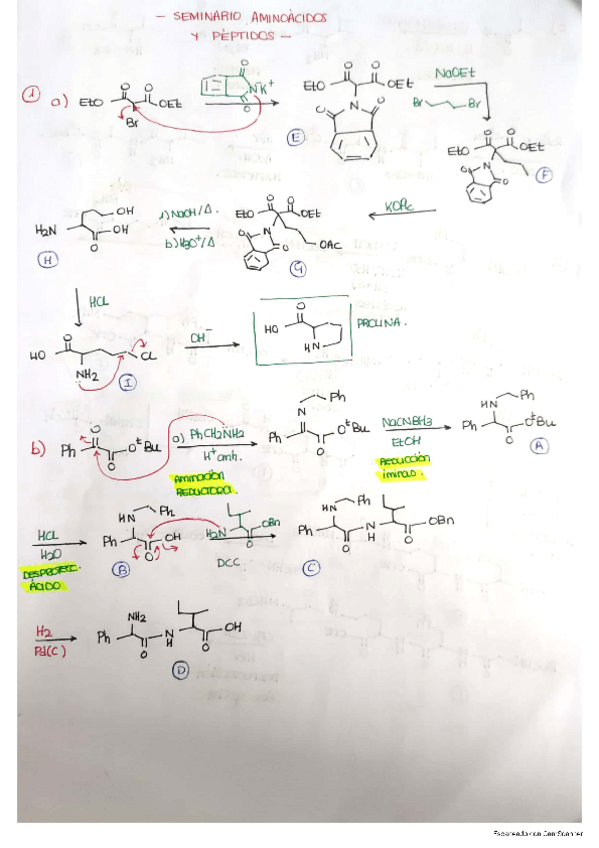 - SEMINARIO AMINOÁCIDOS
Y PÉPTIDOS -
1 a) EtO O O OEt Br
O N⁻K⁺ O
EtO O O OEt N O O
E
NaOEt
Br Br
EtO O O OEt N O O
F
KOAc
EtO O O OEt N O O OAc
G
1) NaOH/Δ.
b) H3O⁺/Δ
H2N OH OH O
H
HCL
HO O NH2 CL
I
OH⁻
HO O HN
PROLINA.
b) Ph O O OᵗBu
a) PhCH2NH2
H⁺ anh.
AMINACIÓN
REDUCTORA.
N Ph Ph O OᵗBu
NaCNBH3
EtOH
REDUCCIÓN
iminas.
HN Ph Ph O OᵗBu
A
HCL
H2O
DESPROTECC.
ÁCIDO
HN Ph Ph OH O
B
H2N OBn O
DCC
HN Ph Ph O N H O OBn
C
H2
Pd(C)
NH2 Ph O N H O OH
D